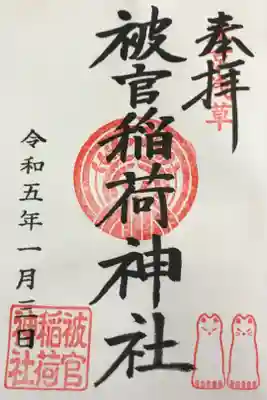 奉拝
草
被官稲荷神社
令和五年一月三日
被官
稲荷
神社